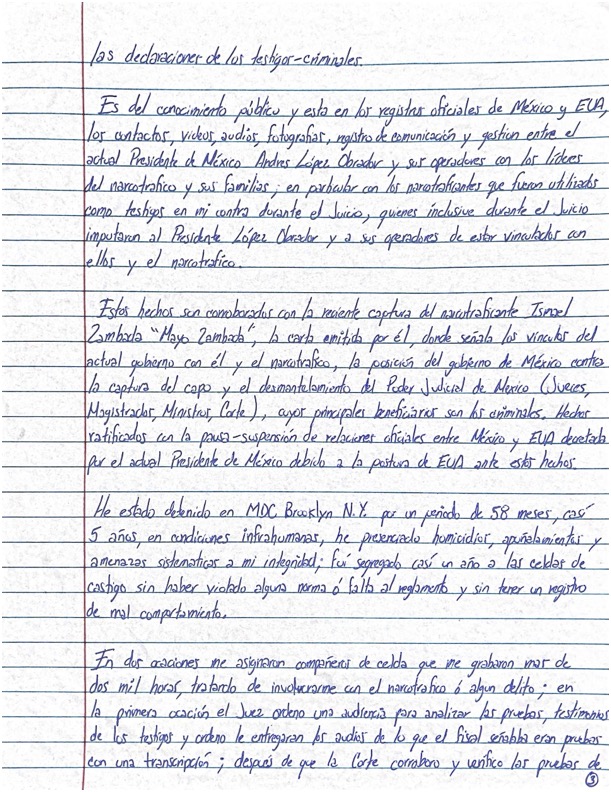 las declaraciones de los testigos-criminales.
Es del conocimiento público y esta en los registros oficiales de México y EUA,
los contactos, videos, audios, fotografías, registro de comunicación y gestión entre el
actual Presidente de México Andres López Obrador y sus operadores con los líderes
del narcotrafico y sus familias; en particular con los narcotraficantes que fueron utilizados
como testigos en mi contra durante el Juicio, quienes inclusive durante el Juicio
imputaron al Presidente López Obrador y a sus operadores de estar vinculados con
ellos y el narcotrafico.
Estos hechos son corroborados con la reciente captura del narcotraficante Ismael
Zambada "Mayo Zambada", la carta emitida por él, donde señala los vinculos del
actual gobierno con él y el narcotrafico, la posición del gobierno de México contra
la captura del capo y el desmantelamiento del Poder Judicial de Mexico (Jueces,
Magistrados, Ministros, Corte), cuyos principales beneficiarios son los criminales. Hechos
ratificados con la pausa-suspensión de relaciones oficiales entre México y EUA decretada
por el actual Presidente de México debido a la postura de EUA ante estos hechos.
He estado detenido en MDC Brooklyn N.Y. por un periodo de 58 meses, casí
5 años, en condiciones infrahumanas, he presenciado homicidios, apuñalamientos y
amenazas sistematicas a mi integridad; fuí segregado casí un año a las celdas de
castigo sin haber violado alguna norma ó falta al reglamento y sin tener un registro
de mal comportamiento.
En dos ocaciones me asignaron compañeros de celda que me grabaron mas de
dos mil horas, tratando de involucrarme con el narcotrafico ó algun delito; en
la primera ocación el Juez ordeno una audiencia para analizar las pruebas, testimonios
de los testigos y ordeno le entregaran los audios de lo que el fiscal señalaba eran pruebas
con una transcripción; después de que la Corte corroboro y verifico las pruebas de
3